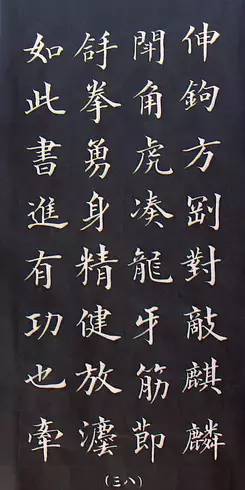 伸鉤方對敵麒麟
角虎凑龍牙筋節
拳勇身精健放
如此書進有功也牽
(三八)